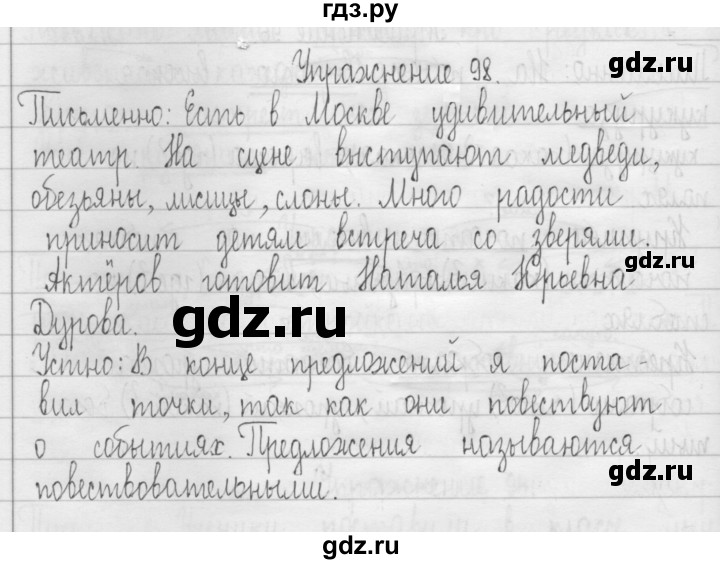 гдз.ру
gdz.ru
Упражнение 98.
Письменно: Есть в Москве удивительный
театр. На сцене выступают медведи,
обезьяны, лисицы, слоны. Много радости
приносит детям встреча со зверями.
gdz.ru
Актёров готовит Наталья Юрьевна
gdz.ru
Дурова.
Устно: В конце предложений я поста-
вил точки, так как они повествуют
gdz.ru
о событиях. Предложения называются
gdz.ru
повествовательными.
gdz.ru